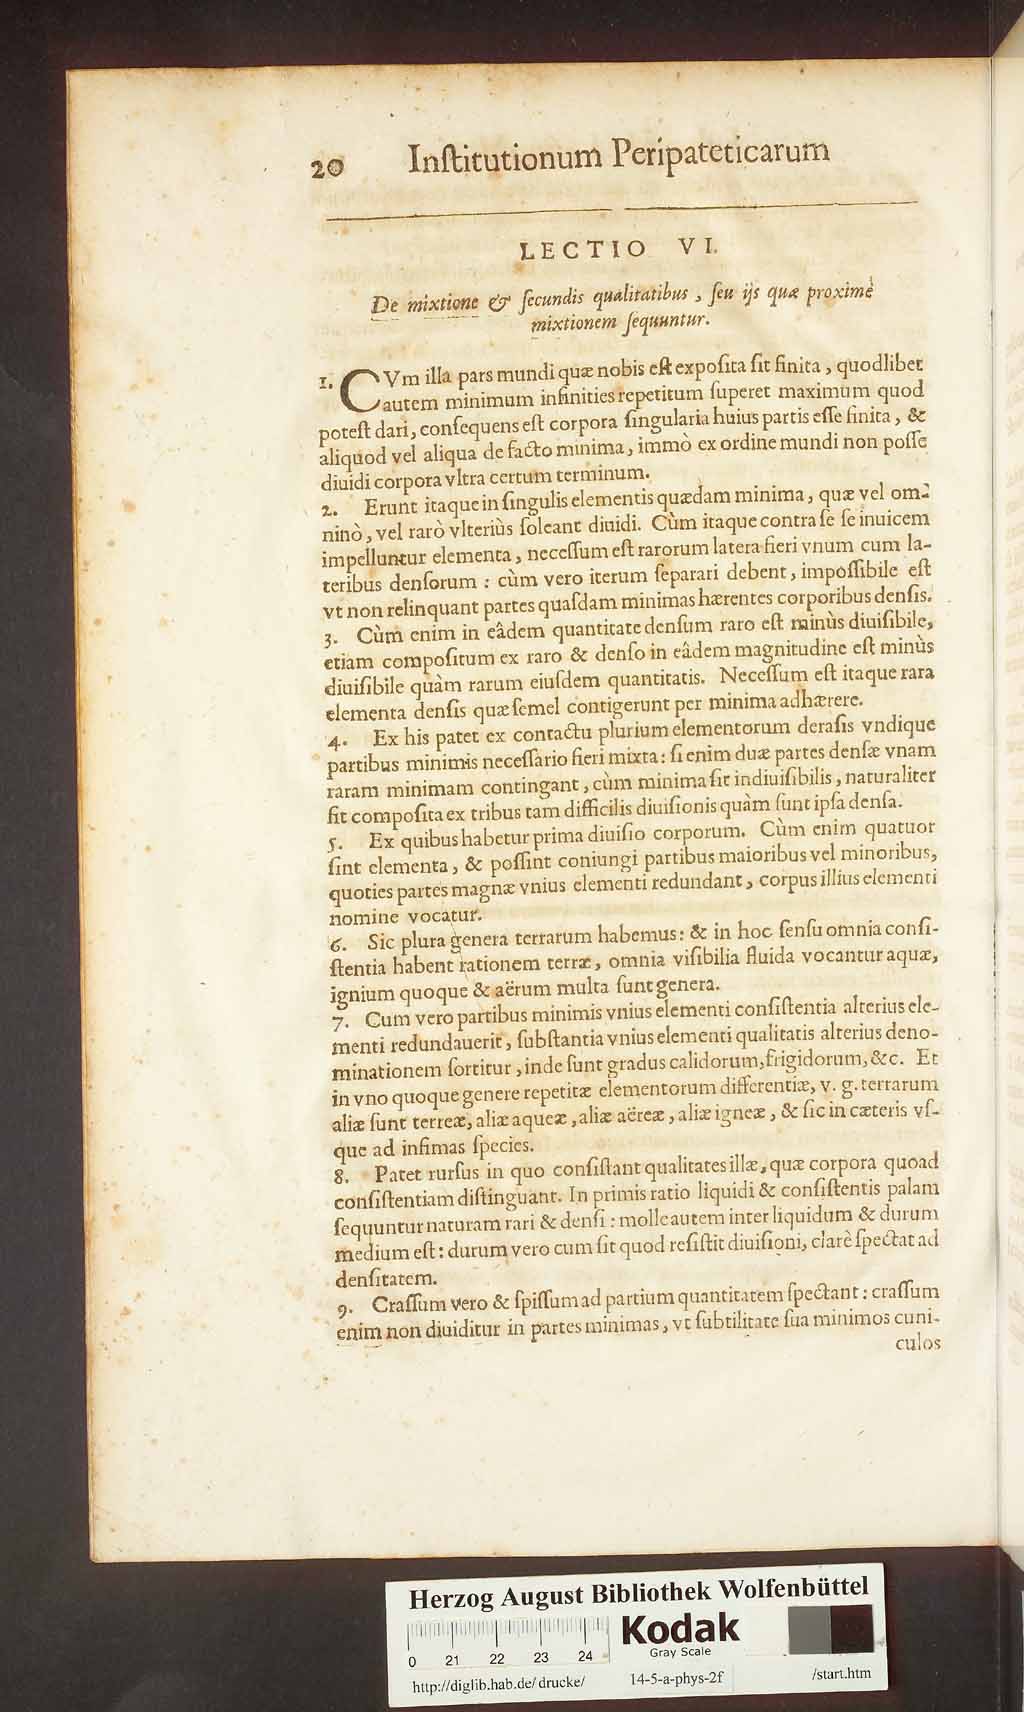 20 Inſtitutionum Peripateticarum
LECTIO VI.
De mixtione & ſecundis qualitatibus, ſeu ijs quæ proximè
mixtionem ſequuntur.
1. CVm illa pars mundi quæ nobis eſt expoſita ſit finita, quodlibet
autem minimum infinities repetitum ſuperet maximum quod
poteſt dari, conſequens eſt corpora ſingularia huius partis eſſe finita, &
aliquod vel aliqua de facto minima, immò ex ordine mundi non poſſe
diuidi corpora vltra certum terminum.
2. Erunt itaque in ſingulis elementis quædam minima, quæ vel om-
ninò, vel rarò vlteriùs ſoleant diuidi. Cùm itaque contra ſe ſe inuicem
impelluntur elementa, neceſſum eſt rarorum latera fieri vnum cum la-
teribus denſorum: cùm vero iterum ſeparari debent, impoſſibile eſt
vt non relinquant partes quaſdam minimas hærentes corporibus denſis.
3. Cùm enim in eâdem quantitate denſum raro eſt minùs diuiſibile,
etiam compoſitum ex raro & denſo in eâdem magnitudine eſt minùs
diuiſibile quàm rarum eiuſdem quantitatis. Neceſſum eſt itaque rara
elementa denſis quæ ſemel contigerunt per minima adhærere.
4. Ex his patet ex contactu plurium elementorum deraſis vndique
partibus minimis neceſſario fieri mixta: ſi enim duæ partes denſæ vnam
raram minimam contingant, cùm minima ſit indiuiſibilis, naturaliter
fit compoſita ex tribus tam difficilis diuiſionis quàm ſunt ipſa denſa.
5. Ex quibus habetur prima diuiſio corporum. Cùm enim quatuor
ſint elementa, & poſſint coniungi partibus maioribus vel minoribus,
quoties partes magnæ vnius elementi redundant, corpus illius elementi
nomine vocatur.
6. Sic plura genera terrarum habemus: & in hoc ſenſu omnia conſi-
ſtentia habent rationem terræ, omnia viſibilia fluida vocantur aquæ,
ignium quoque & aërum multa ſunt genera.
7. Cum vero partibus minimis vnius elementi conſiſtentia alterius ele-
menti redundauerit, ſubſtantia vnius elementi qualitatis alterius deno-
minationem ſortitur, inde ſunt gradus calidorum, frigidorum, &c. Et
in vno quoque genere repetitæ elementorum differentiæ, v. g. terrarum
aliæ ſunt terreæ, aliæ aqueæ, aliæ aëreæ, aliæ igneæ, & ſic in cæteris vſ-
que ad infimas ſpecies.
8. Patet rurſus in quo conſiſtant qualitates illæ, quæ corpora quoad
conſiſtentiam diſtinguant. In primis ratio liquidi & conſiſtentis palam
ſequuntur naturam rari & denſi: molle autem inter liquidum & durum
medium eſt: durum vero cum ſit quod reſiſtit diuiſioni, clarè ſpectat ad
denſitatem.
9. Craſſum vero & ſpiſſum ad partium quantitatem ſpectant: craſſum
enim non diuiditur in partes minimas, vt ſubtilitate ſua minimos cuni-
culos
Herzog August Bibliothek Wolfenbüttel
Kodak
Gray Scale
0 21 22 23 24
http://diglib.hab.de/drucke/ 14-5-a-phys-2f /start.htm